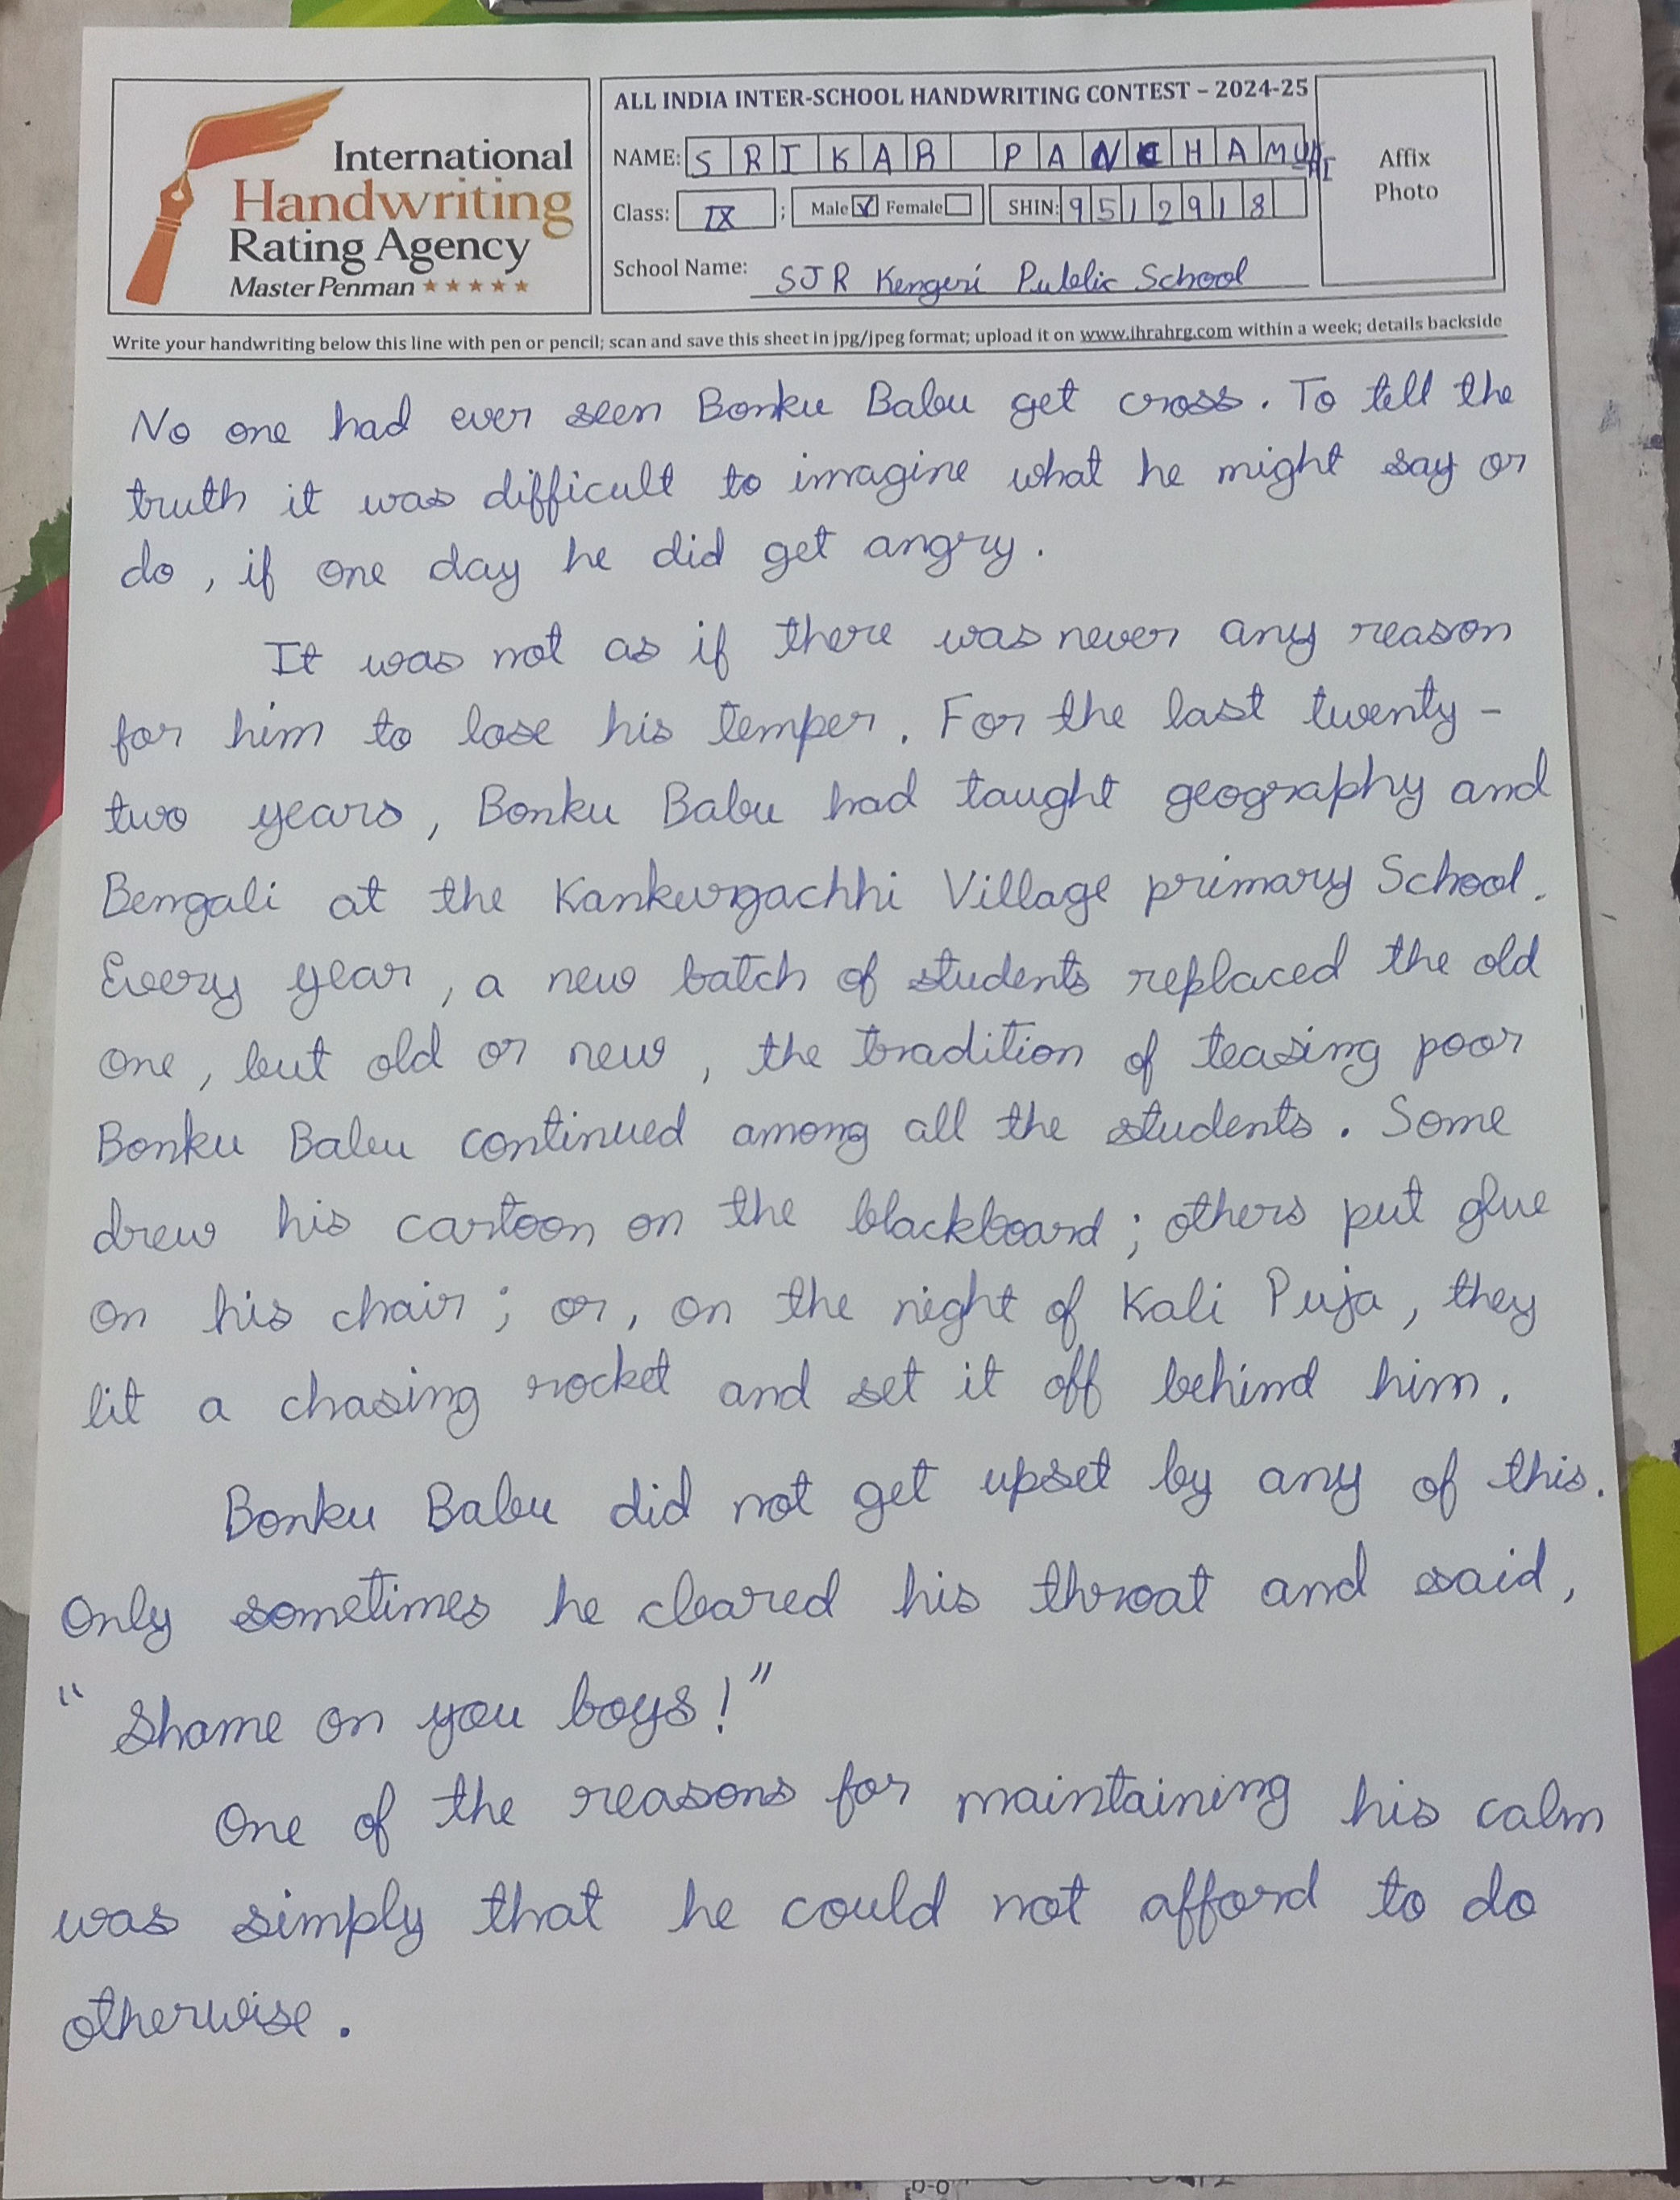 International
Handwriting
Rating Agency
Master Penman ★★★★★
ALL INDIA INTER-SCHOOL HANDWRITING CONTEST – 2024-25
NAME: SRIKAR PANCHAMUKHI
Class: IX ; Male ☑ Female ☐ SHIN: 9512918
School Name: SJR Kengeri Public School
Affix
Photo
Write your handwriting below this line with pen or pencil; scan and save this sheet in jpg/jpeg format; upload it on www.ihrahrg.com within a week; details backside
No one had ever seen Bonku Babu get cross. To tell the
truth it was difficult to imagine what he might say or
do, if one day he did get angry.
It was not as if there was never any reason
for him to lose his temper. For the last twenty-
two years, Bonku Babu had taught geography and
Bengali at the Kankurgachhi Village primary School.
Every year, a new batch of students replaced the old
one, but old or new, the tradition of teasing poor
Bonku Babu continued among all the students. Some
drew his cartoon on the blackboard; others put glue
on his chair; or, on the night of Kali Puja, they
lit a chasing rocket and set it off behind him.
Bonku Babu did not get upset by any of this.
Only sometimes he cleared his throat and said,
"Shame on you boys!"
One of the reasons for maintaining his calm
was simply that he could not afford to do
otherwise.